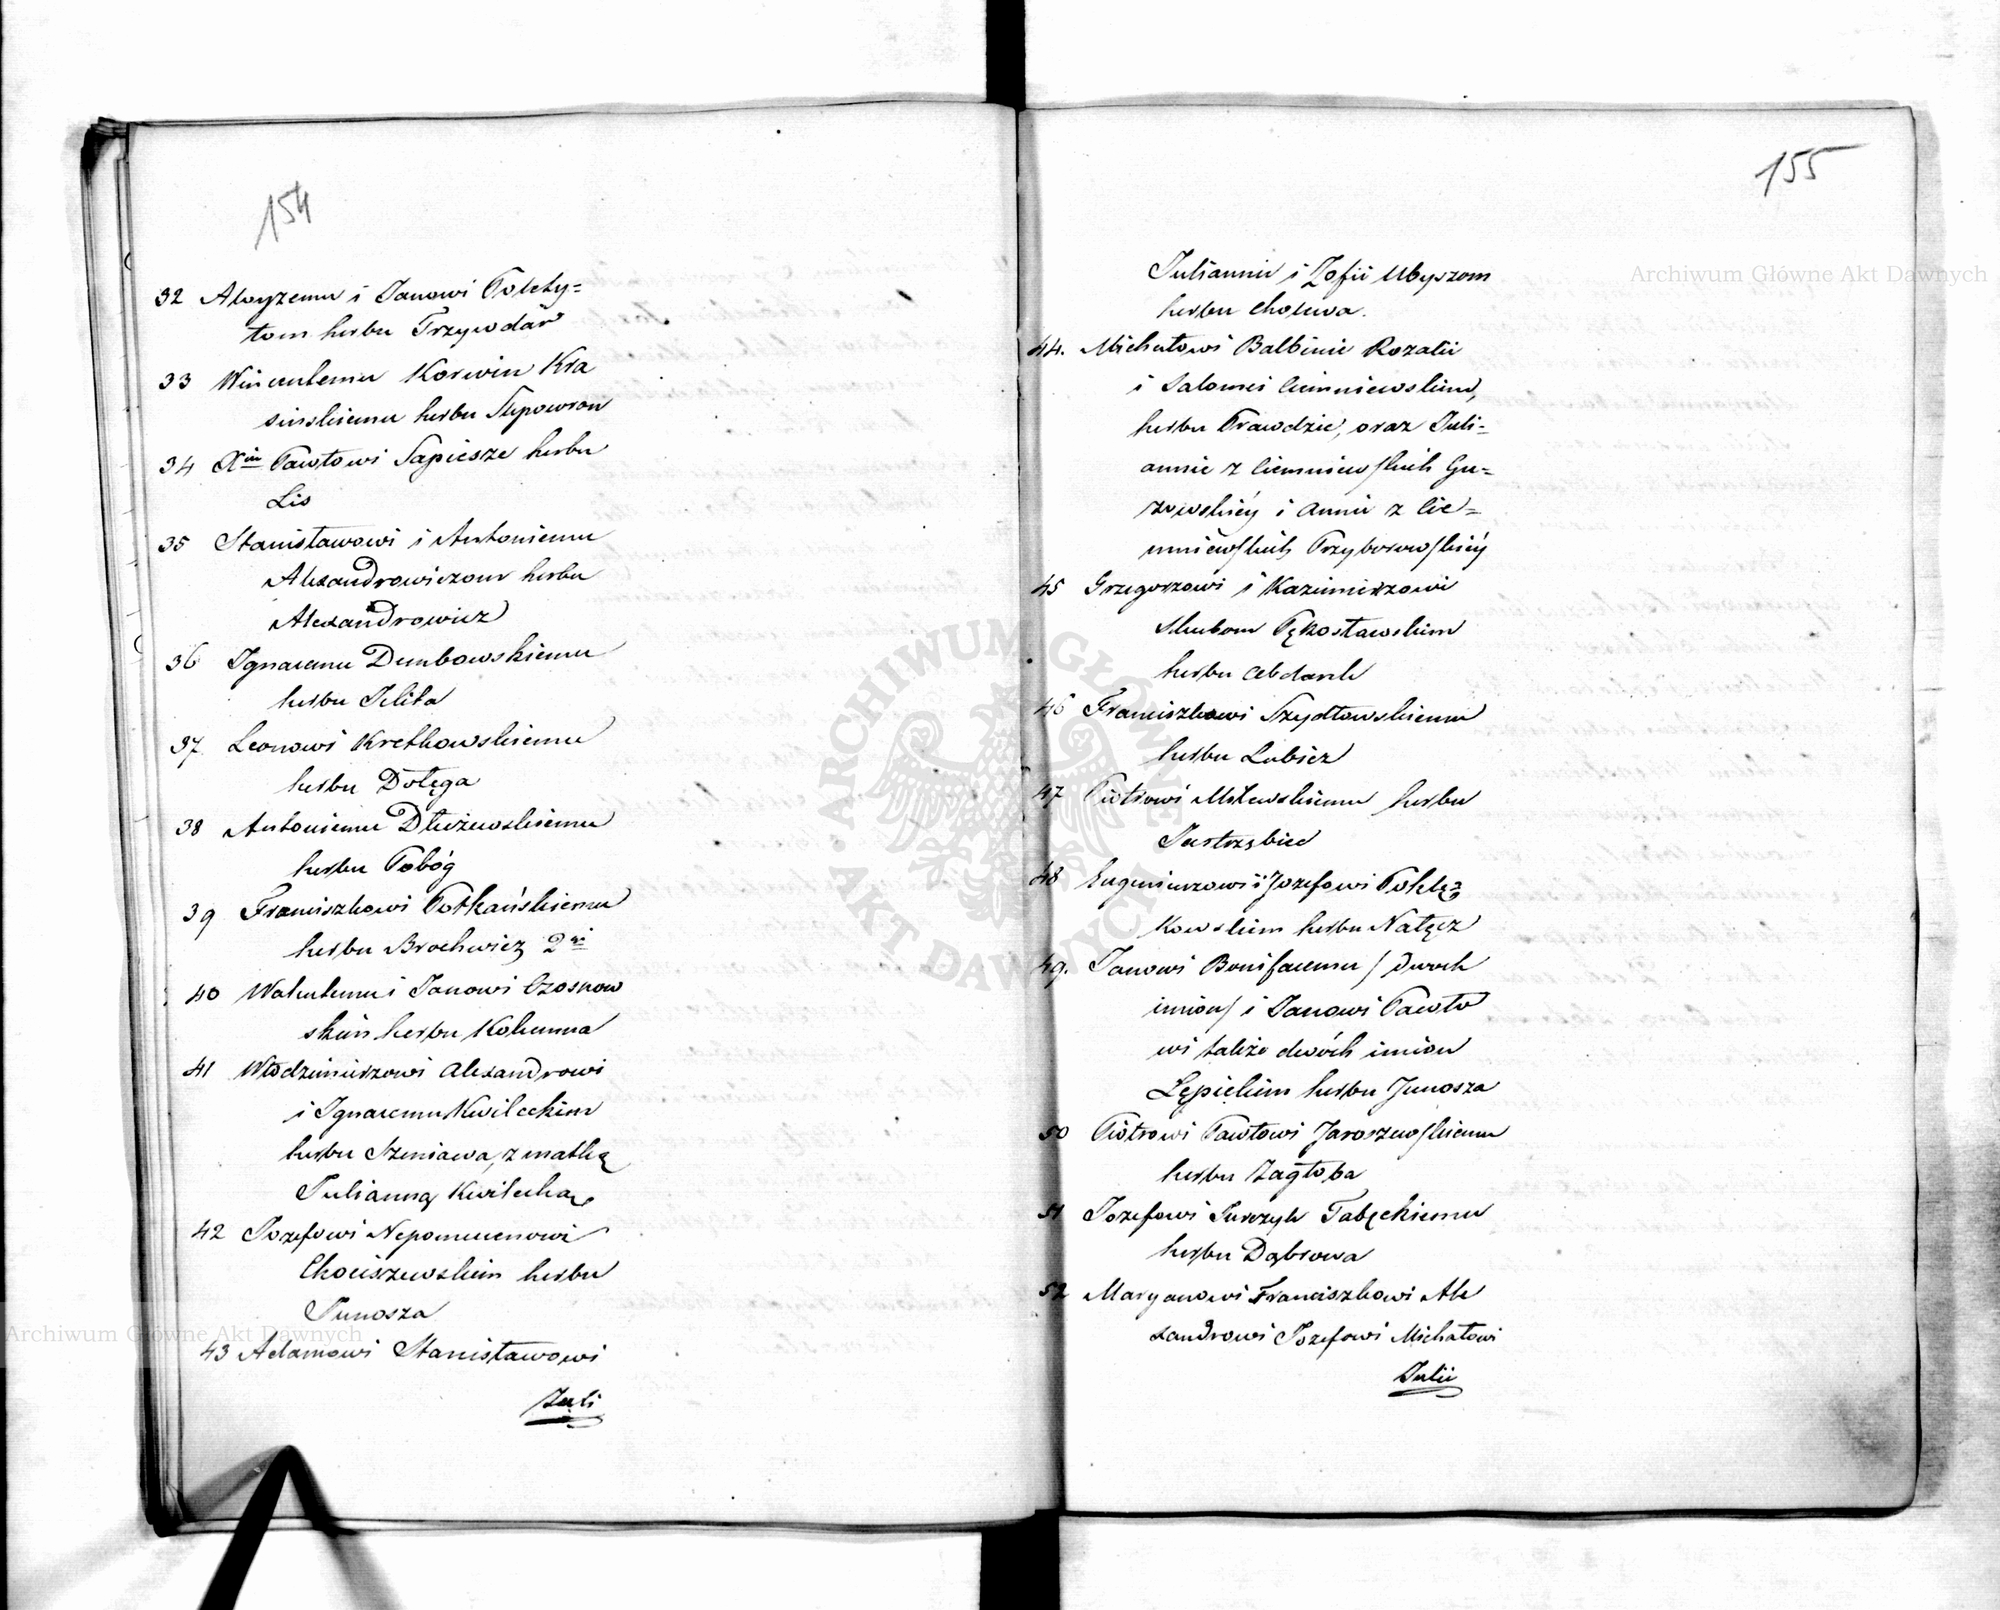 154
32 Aloyzemu i Janowi Polety=
tom herbu Trzywdar
33 Wincentemu Korwin Kra
sińskiemu herbu Slepowron
34 Xciu Pawłowi Sapieże herbu
Lis
35 Stanisławowi i Antoniemu
Alexandrowiczom herbu
Alexandrowicz
36 Ignacemu Dembowskiemu
herbu Jelita
37 Leonowi Kretkowskiemu
herbu Dołęga
38 Antoniemu Dłużewskiemu
herbu Pobóg
39 Franciszkowi Potkańskiemu
herbu Brochwicz 2ᵍⁱ
40 Walentemu i Janowi Czosnow
skim herbu Kolumna
41 Włodzimierzowi Alexandrowi
i Ignacemu Kwileckim
herbu Szreniawa, z matką
Julianną Kwilecką
42 Jozefowi Nepomucenowi
Chociszewskim herbu
Junosza
43 Adamowi Stanisławowi
Juli
155
Juliannie i Zofii Ubyszom
herbu Cholewa.
44. Michałowi Balbinie Rozalii
i Salomei Ciemniewskim,
herbu Prawdzic, oraz Juli=
annie z Ciemniewskich Gu=
zowskiéy i Annie z Cie=
mniewskich Przyborowskiéy
45 Grzegorzowi i Kazimierzowi
Skubom Pękosławskim
herbu Abdank
46 Franciszkowi Szydłowskiemu
herbu Lubicz
47 Piotrowi Milewskiemu herbu
Jastrzębiec
48 Eugeniuszowi i Jozefowi Poklę=
kowskim herbu Nałęcz
49. Janowi Bonifacemu / dwoch
imion / i Janowi Pawło
wi także dwóch imion
Łępickim herbu Junosza
50 Piotrowi Pawłowi Jaroszewskiemu
herbu Zagłoba
51 Jozefowi Jurzyk Tabęckiemu
herbu Dąbrowa
52 Maryanowi Franciszkowi Ale
xandrowi Jozefowi Michałowi
Julii
Archiwum Główne Akt Dawnych
Archiwum Główne Akt Dawnych
ARCHIWUM GŁÓWNE AKT DAWNYCH